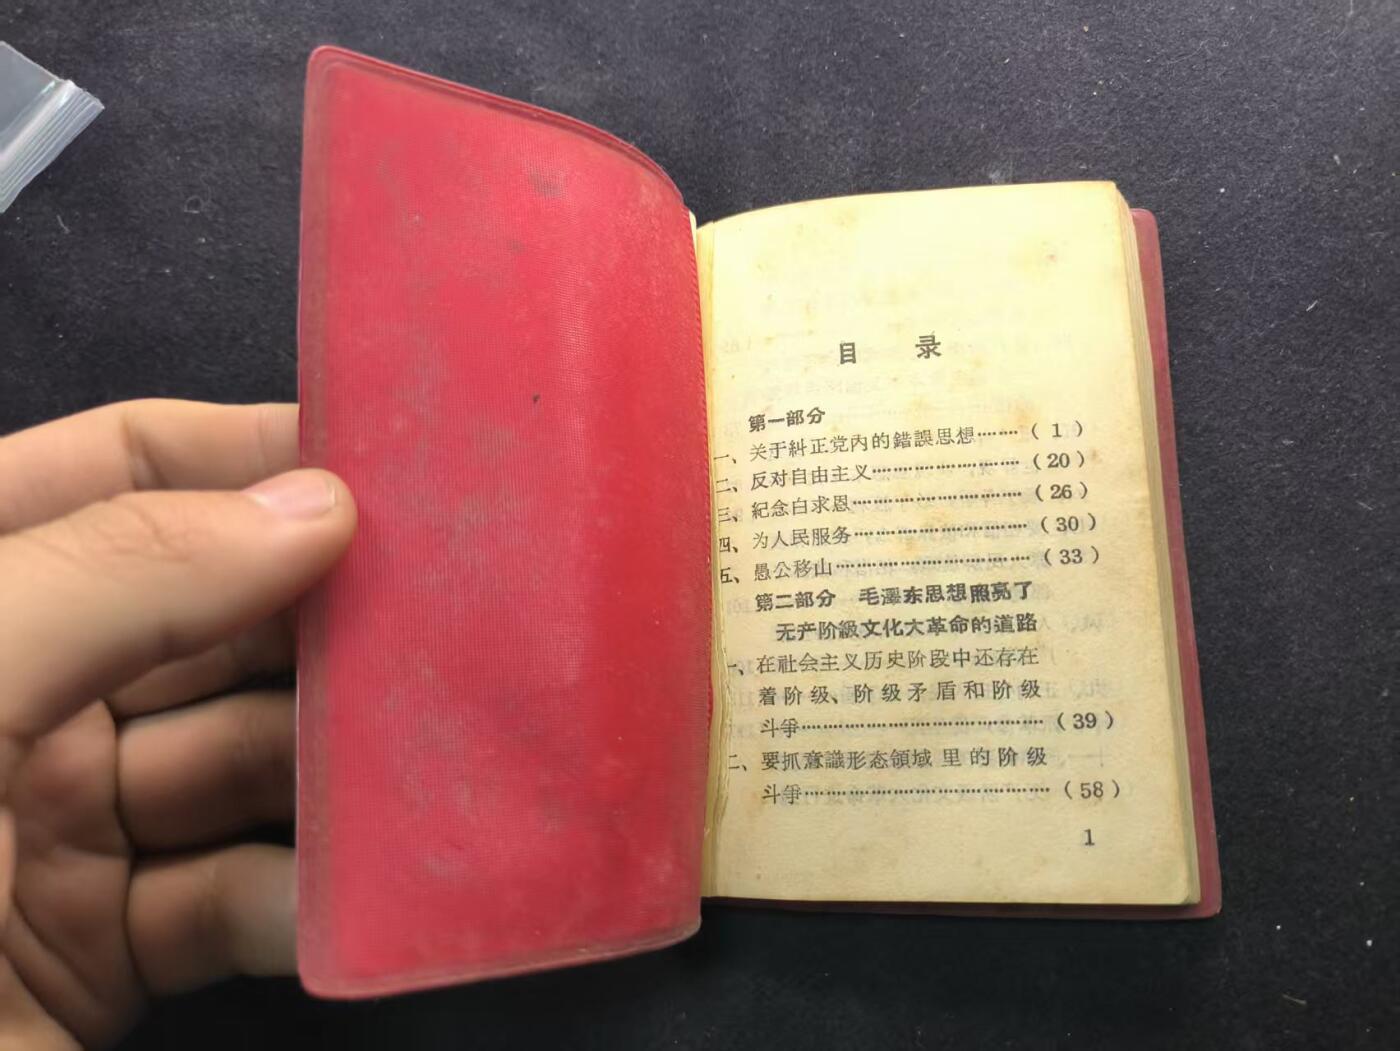 目 录
第一部分
一、关于糾正党內的錯誤思想………( 1 )
二、反对自由主义…………………………(20)
三、紀念白求恩……………………………(26)
四、为人民服务……………………………(30)
五、愚公移山………………………………(33)
第二部分 毛澤东思想照亮了
无产阶級文化大革命的道路
一、在社会主义历史阶段中还存在
着阶级、阶级矛盾和阶级
斗爭……………………………………(39)
二、要抓意識形态領域里的阶级
斗爭……………………………………(58)
1